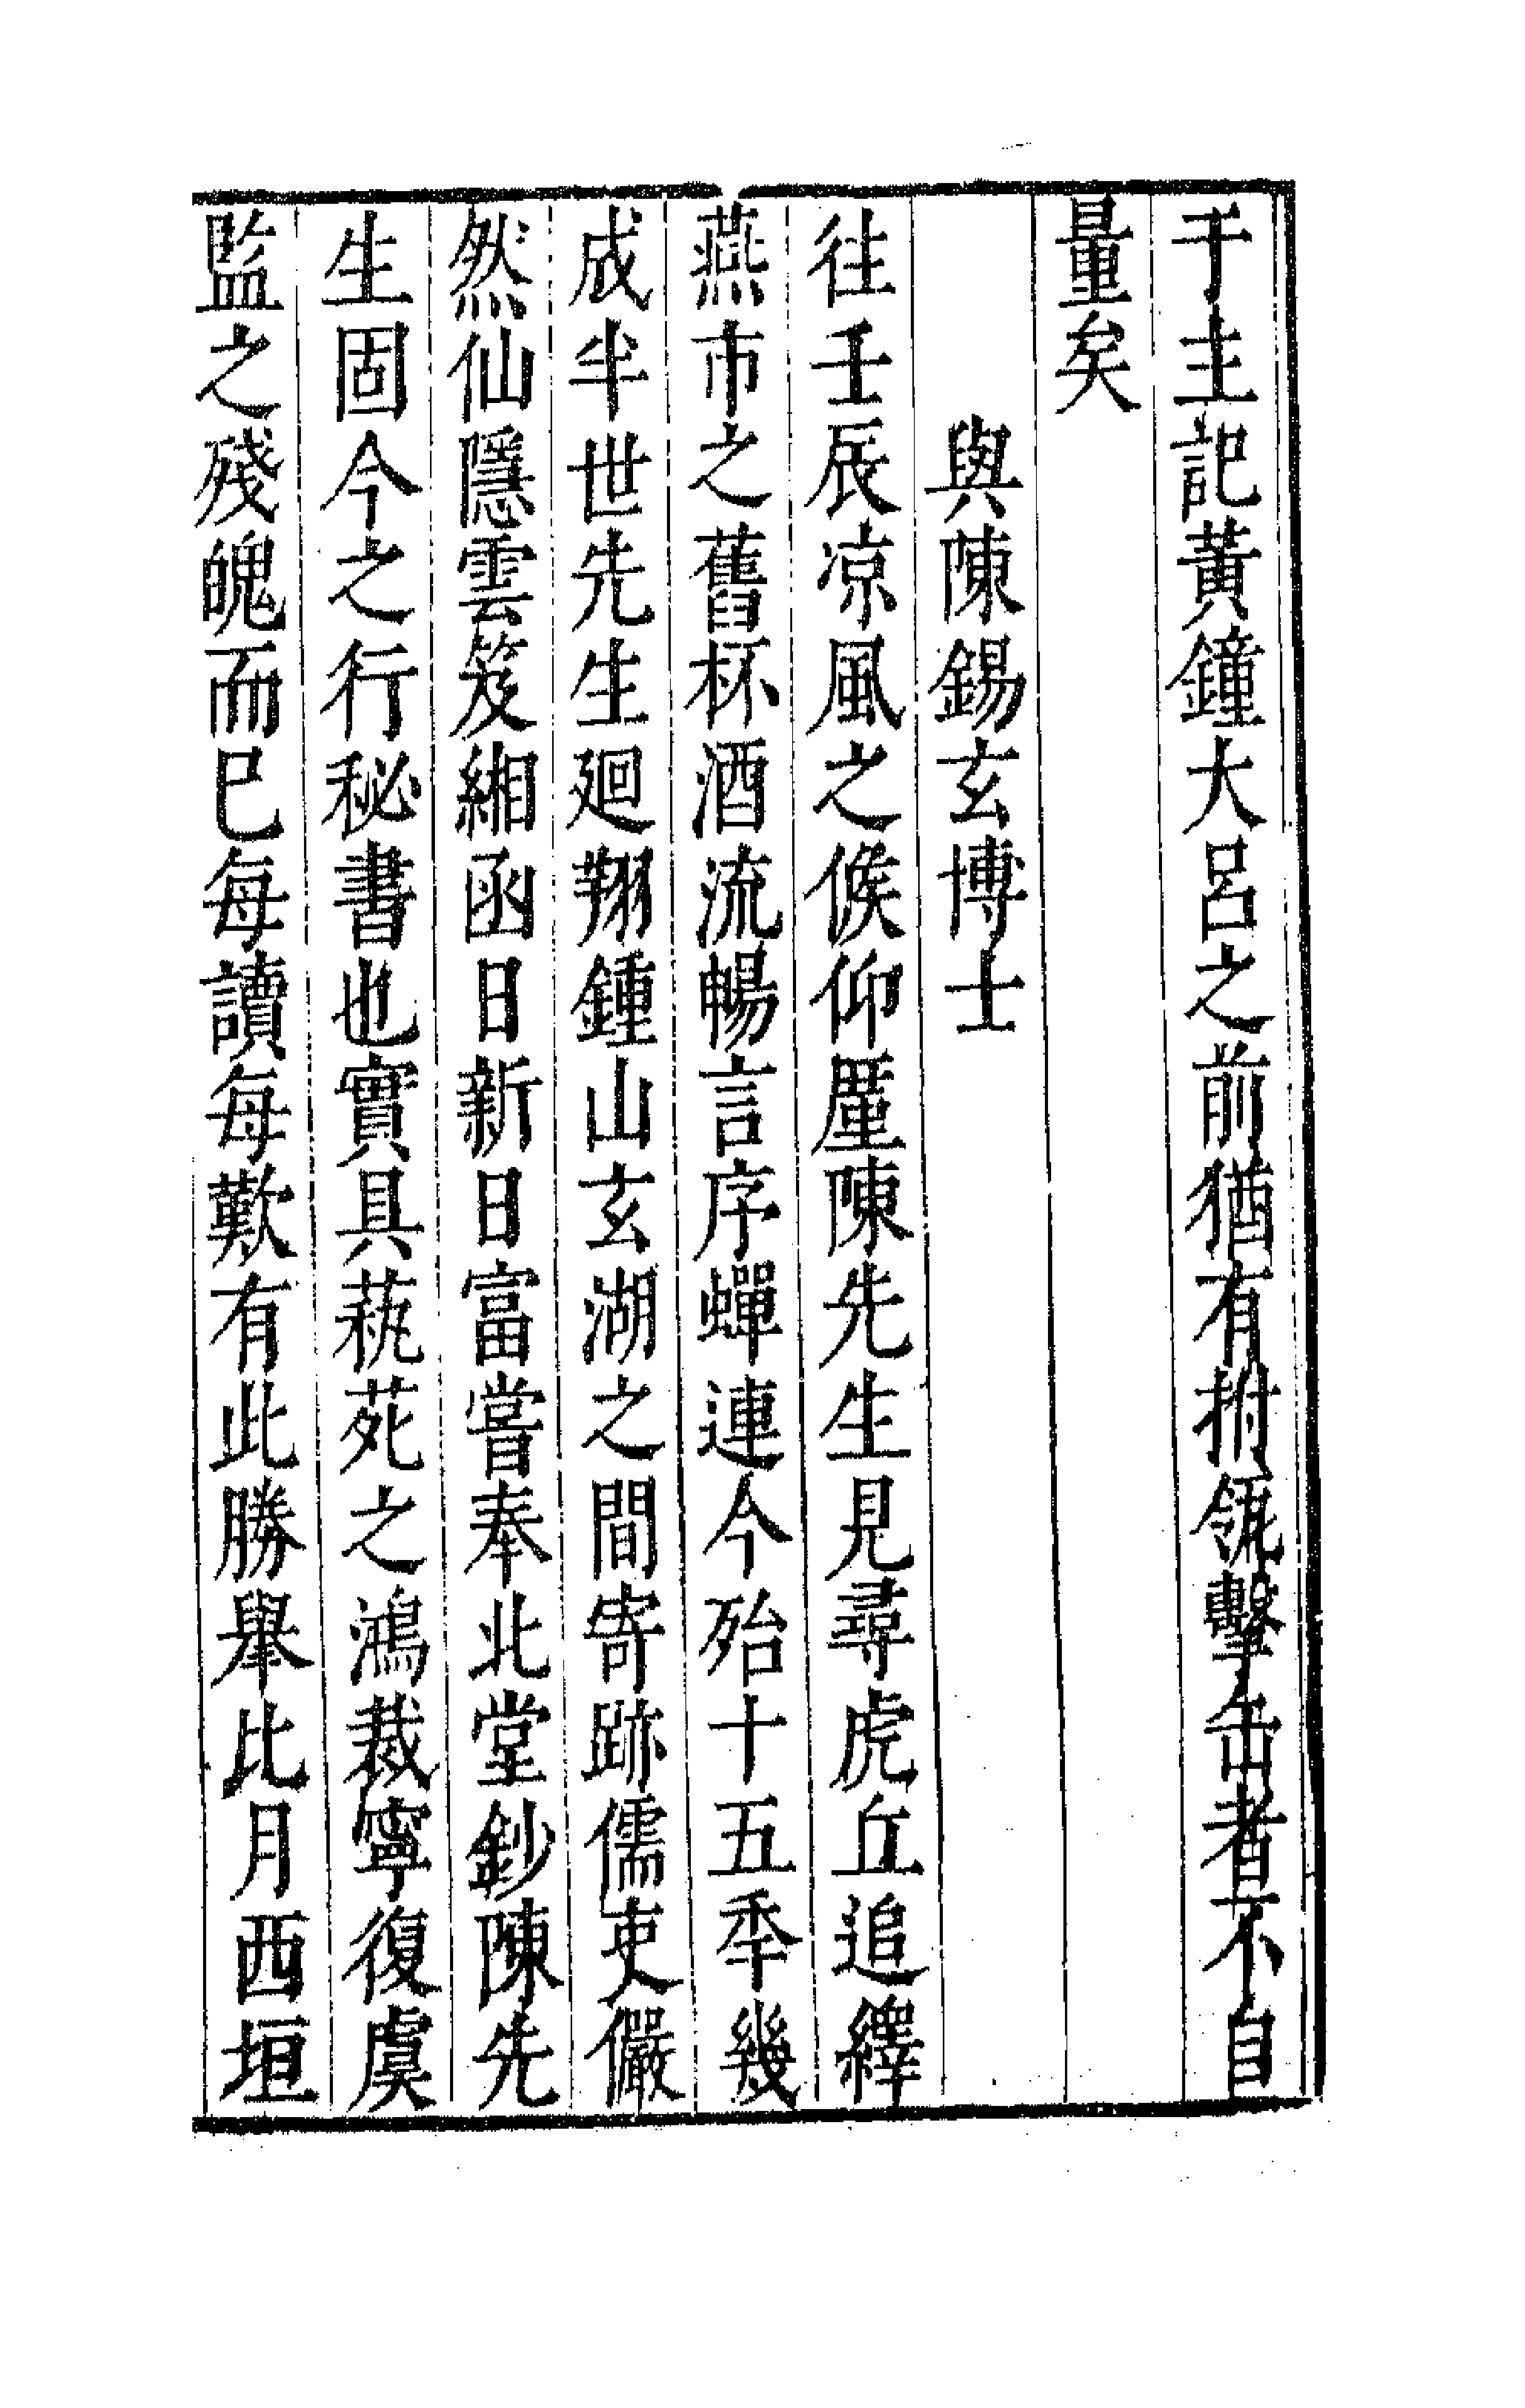 于主記黃鐘大呂之前猶有拊瓴擊缶者不自
量矣
與陳錫玄博士
往壬辰凉風之候仰厪陳先生見尋虎丘追繹
燕市之舊杯酒流暢言序蟬連今殆十五季幾
成半世先生廻翔鍾山玄湖之間寄跡儒吏儼
然仙隱雲笈緗函日新日富嘗奉北堂鈔陳先
生固今之行秘書也實具蓺苑之鴻裁寧復虞
監之殘魄而已每讀每歎有此勝舉比月西垣